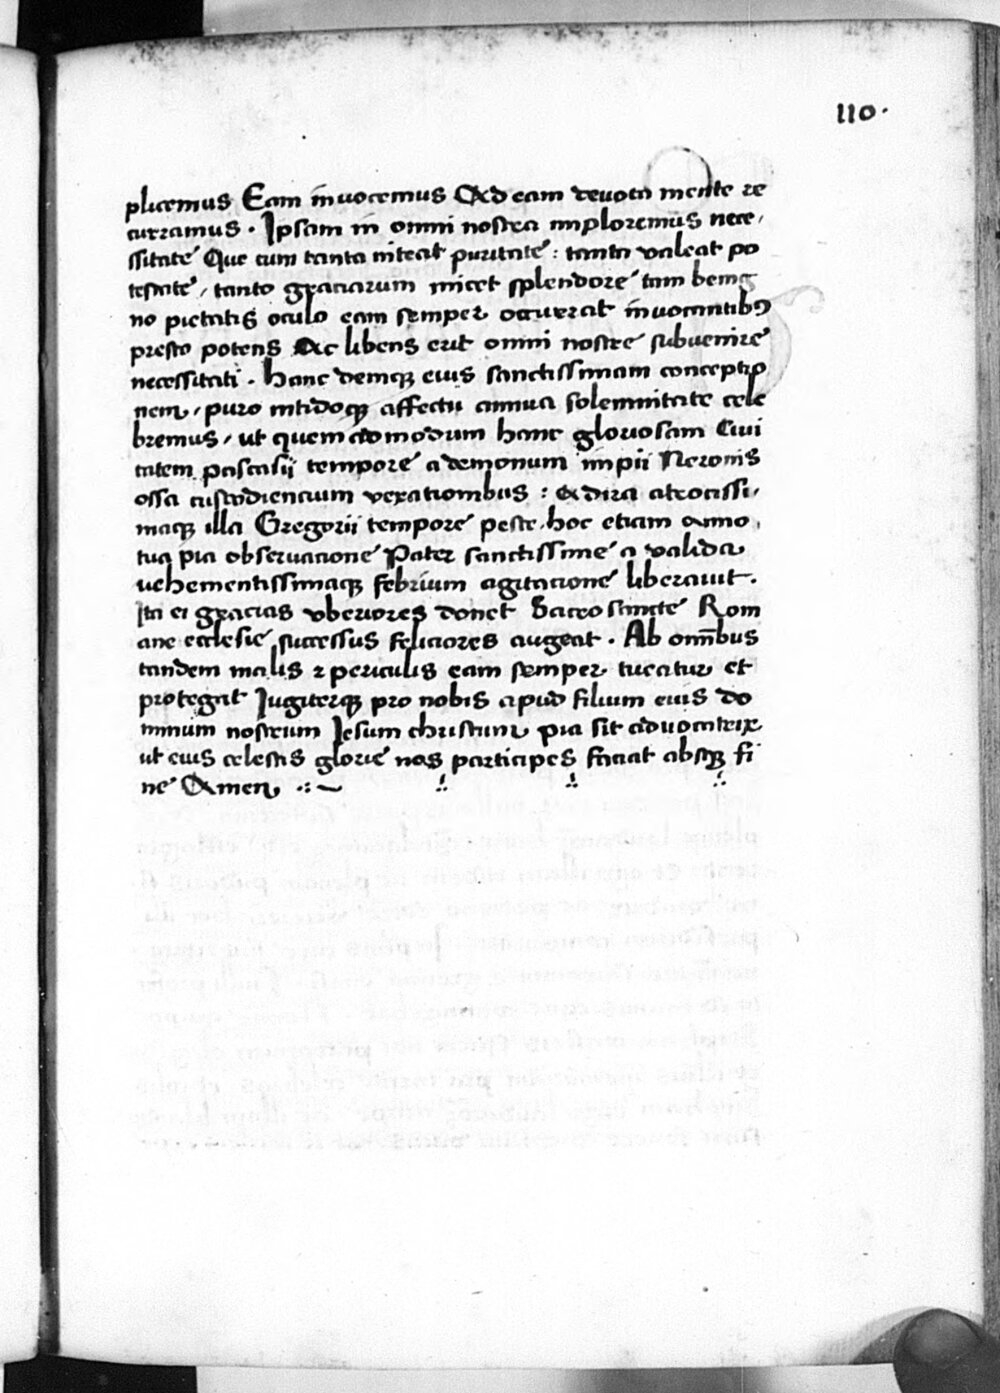 110.
plicemus Eam invocemus Ad eam devota mente re
curramus . Ipsam in omni nostra imploremus nece,
ssitate Que cum tanta niteat puritate : tanta valeat po
testate , tanto graciarum micet splendore tam benig
no pietatis oculo eam semper occurrat invocantibꝯ
presto potens Ac libens erit omni nostre subvenire
necessitati . Hanc demcꝫ eius sanctissimam conceptio
nem , puro nitidoqꝫ affectu annua solemnitate cele
bremus , ut quemadmodum hanc gloriosam Civi
tatem pascasii tempore a demonum impii Neronis
ossa custodiencium vexationibus : & dira atrocissi,
maqꝫ illa Gregorii tempore peste hoc etiam anno ,
tua pia observatione Pater sanctissime a valida
vehementissimaqꝫ febrium agitacione liberavit .
Ita ei gracias vberiores donet Sacrosancte Rom
ane ecclesie successus feliciores augeat . Ab omĩbus
tandem malis ⁊ periculis eam semper tueatur et
protegat Iugiterqꝫ pro nobis apud filium eius do
minum nostrum Jesum christum pia sit advocatrix
ut eius celestis glorie nos participes faciat absqꝫ fi
ne Amen .:~